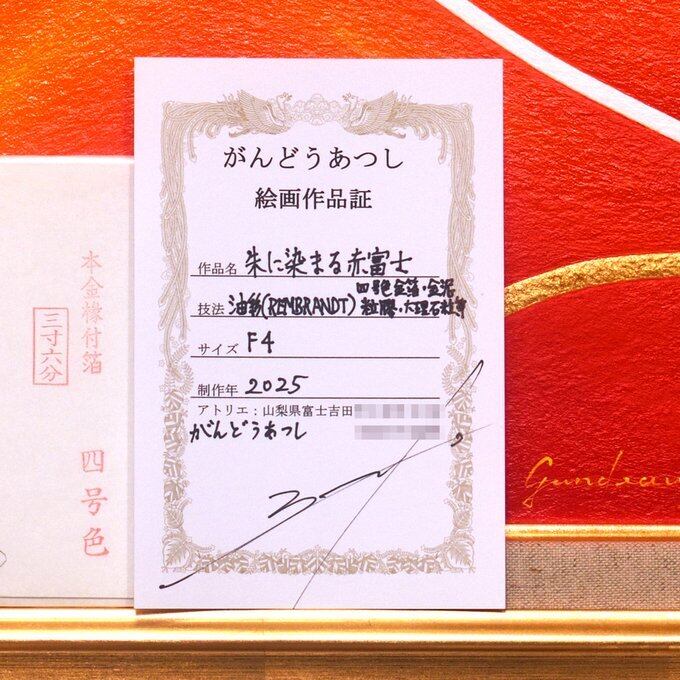 がんどうあつし
絵画作品証
作品名 朱に染まる赤富士
四号色金箔・金泥
技法 油彩(REMBRANDT) 粒膠・大理石粒等
サイズ F4
制作年 2025
アトリエ:山梨県富士吉田
がんどうあつし
本金縁付箔
三寸六分
四号色